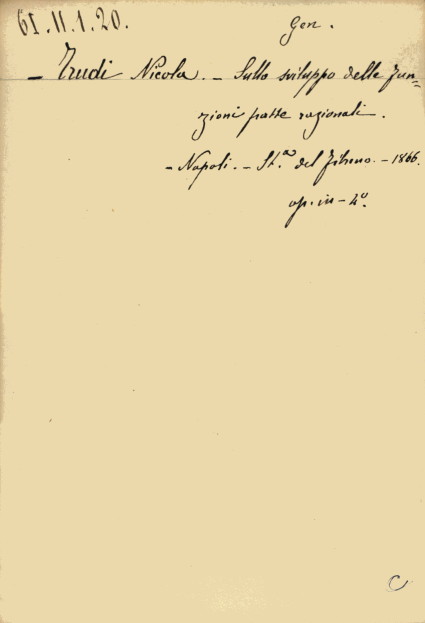 61.II.1.20.
Gen.
- Trudi Nicola. - Sullo sviluppo delle fun=
zioni fratte razionali.
- Napoli. - St.ª del Fibreno. - 1866.
op. in - 4º.
C